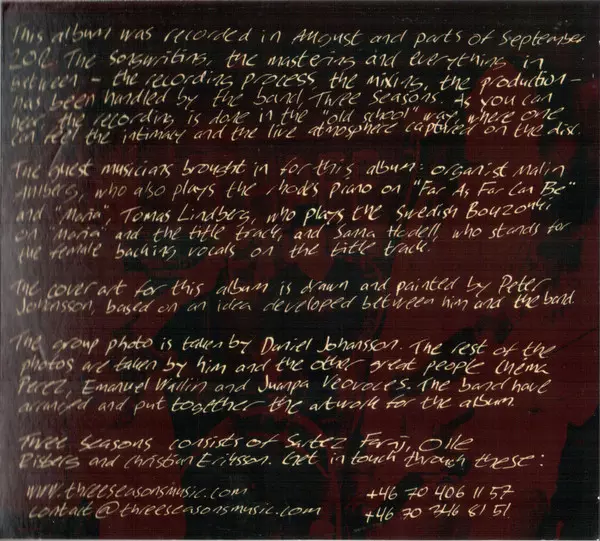 This album was recorded in August and parts of September
2012. The songwriting, the mastering and everything in
between - the recording process, the mixing, the production -
has been handled by the band, Three Seasons. As you can
hear the recording is done in the "old school" way, where one
can feel the intimacy and the live atmosphere captured on the disc.
The guest musicians brought in for this album: organist Malin
Ahlberg, who also plays the rhodes piano on "Far As Far Can Be"
and "Maria", Tomas Lindberg, who plays the Swedish Bouzouki
on "Maria" and the title track, and Sanna Hodell who stands for
the female backing vocals on the title track.
The cover art for this album is drawn and painted by Peter
Johansson, based on an idea developed between him and the band.
The group photo is taken by Daniel Johansson. The rest of the
photos are taken by him and the other great people Chema
Perez, Emanuel Wallin and Juanpa Veovoces. The band have
arranged and put together the artwork for the album.
Three Seasons consists of Sartez Faraj, Olle
Risberg and Christian Eriksson. Get in touch through these:
www.threeseasonsmusic.com +46 70 406 11 57
contact@threeseasonsmusic.com +46 70 246 81 51